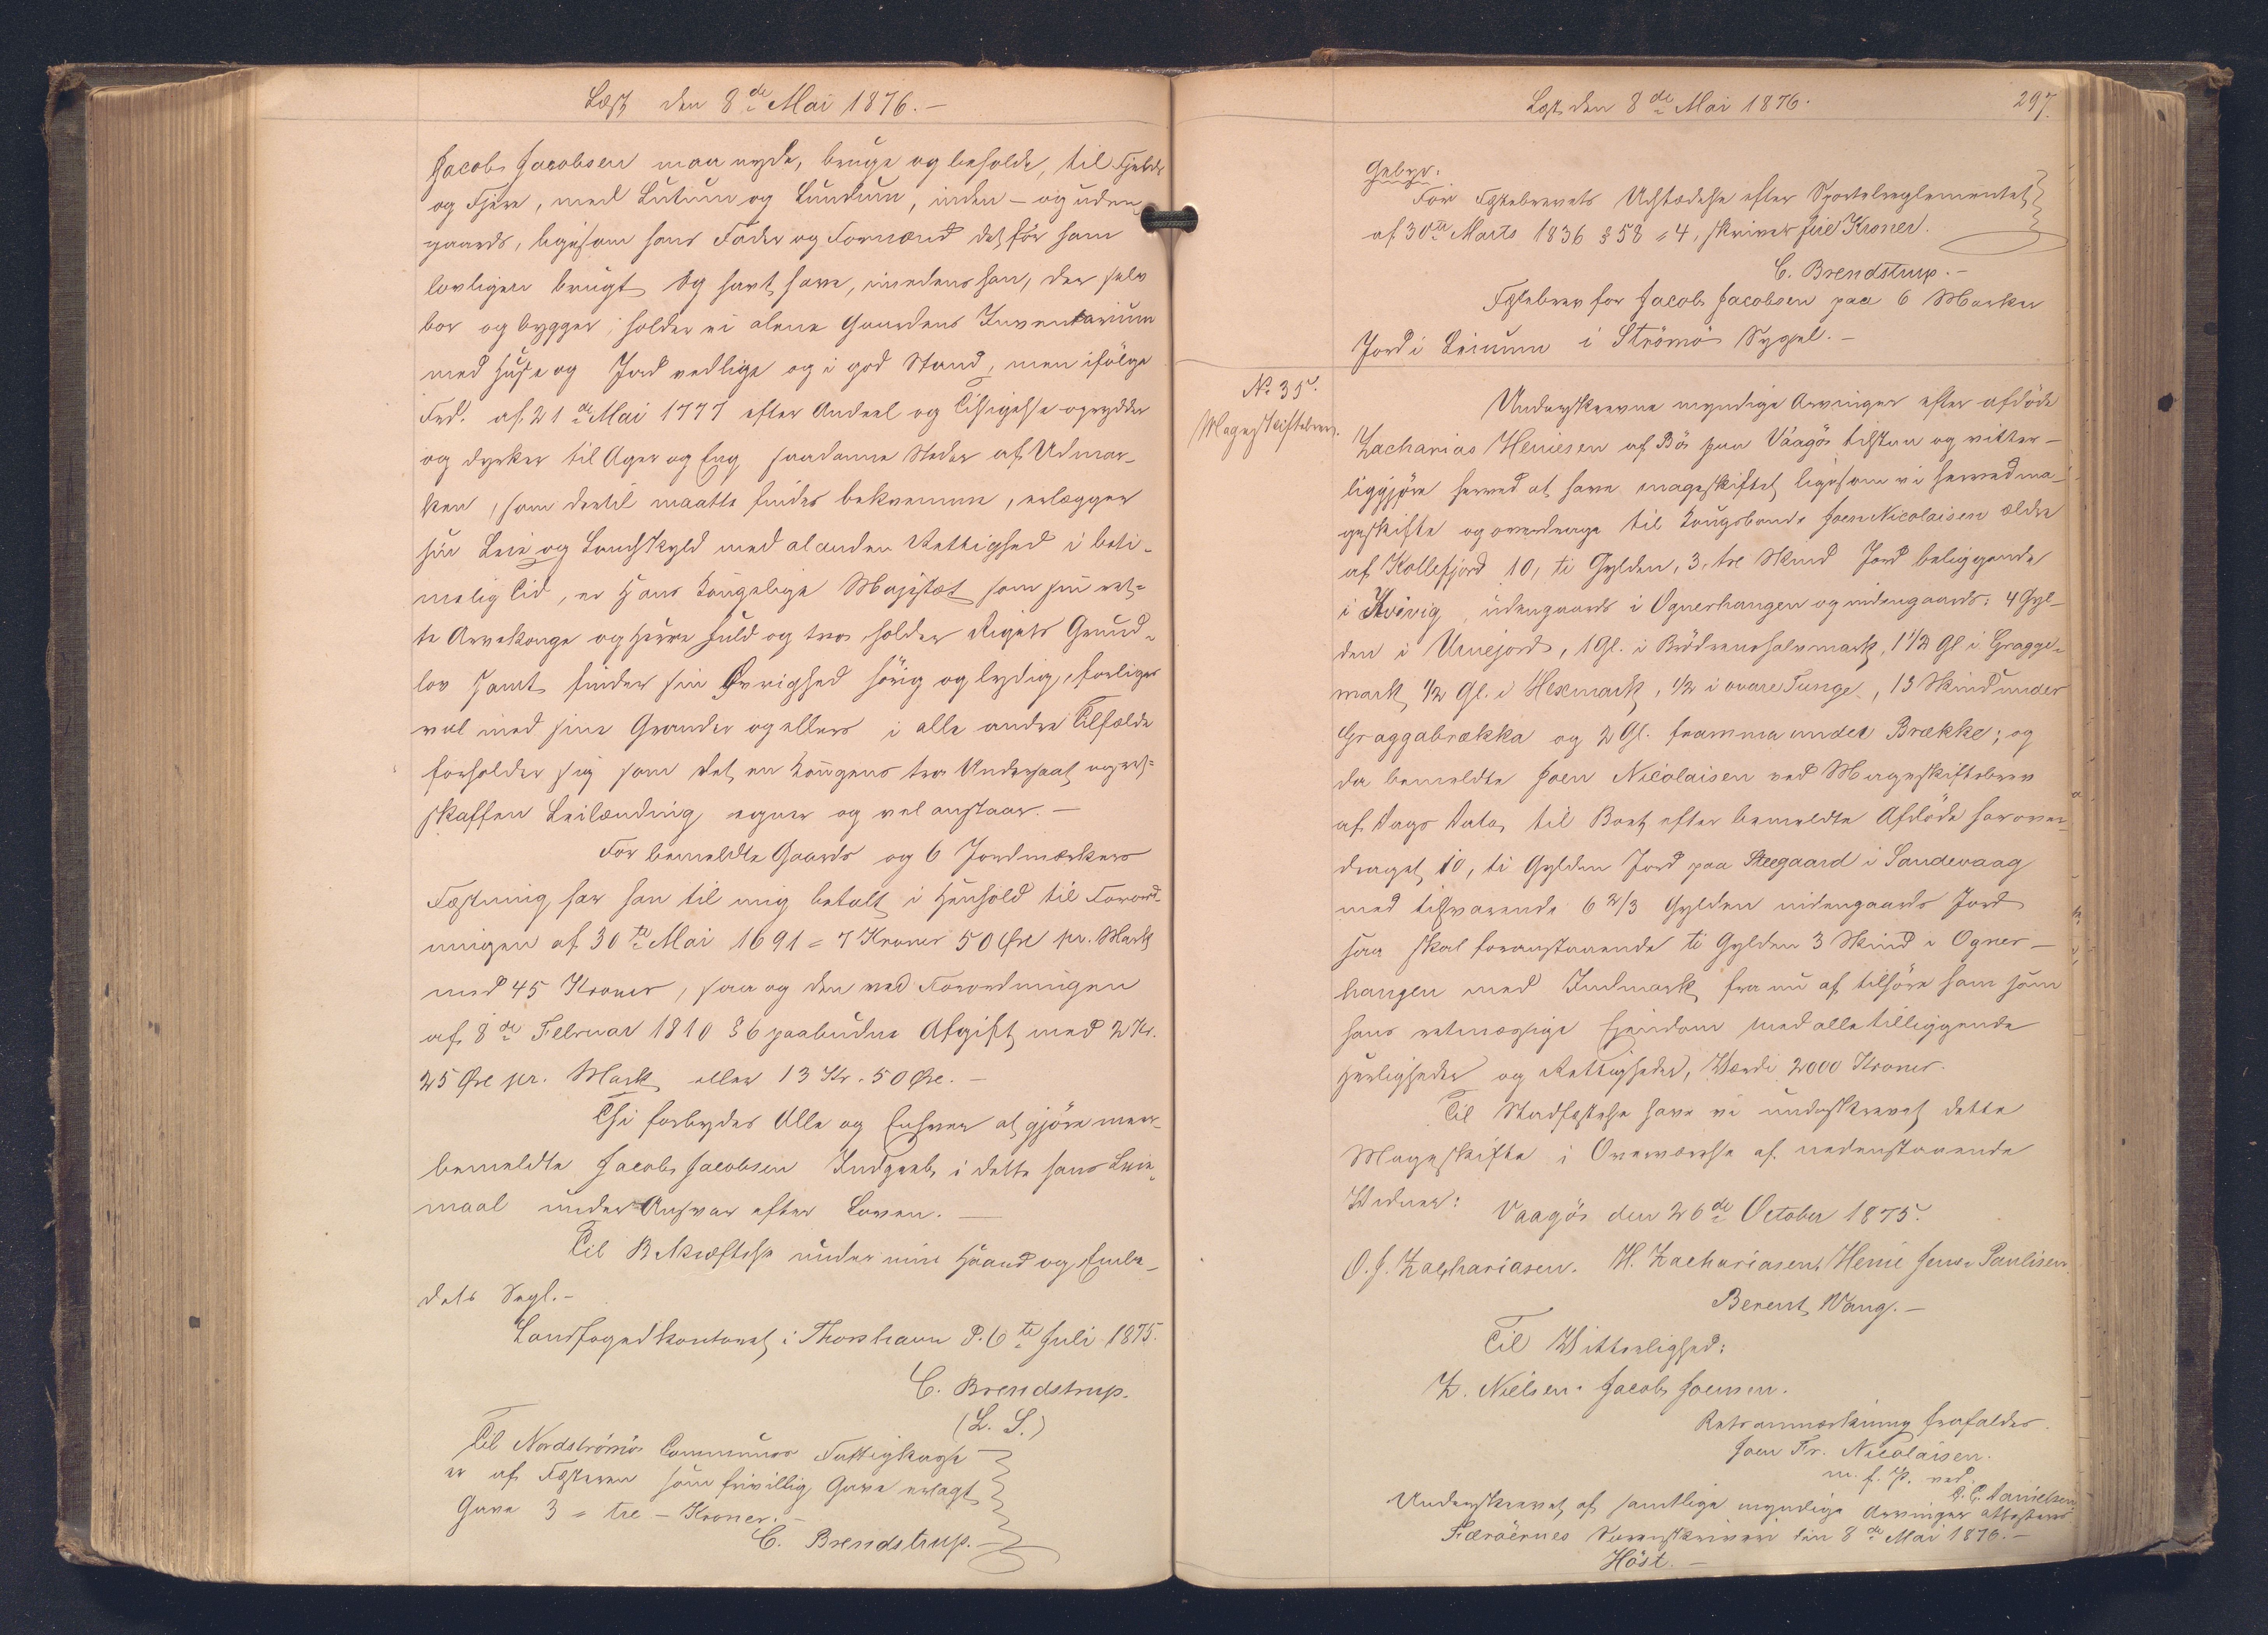 Læst den 8de Mai 1876.-
Jacob Jacobsen maa nyde, bruge og beholde, til Fjelds
og Fjære, med Luttum og Lundum, inden- og uden-
gaards, ligesom hans Fader og Formænd det før ham
lovligen brugt og havt have, imedens han, der selv
bor og bygger, holder ei alene Gaardens Inventarium
med Huse og Jord vedlige og i god Stand, men ifölge
Frd. af 21de Mai 1777 efter Andeel og Tilsigelse oprydder
og dyrker til Ager og Eng saadanne Steder af Udmar-
ken, som dertil maatte findes bekvemme, erlægger
sin Leie og Landskyld med al anden Rettighed i beti-
melig Tid, er Hans Kongelige Majestæt som sin ret-
te Arvekonge og Herre huld og tro, holder Rigets Grund-
lov samt finder sin Øvrighed hörig og lydig, forliges
vel med sine Grander og ellers i alle andre Tilfælde
forholder sig som det en Kongens tro Undersaat og ret-
skaffen Leilænding egner og vel anstaar.-
For bemeldte Gaards og 6 Jordmarkers
Fæstning har han til mig betalt i Henhold til Forord-
ningen af 30te Mai 1691 = 7 Kroner 50 Øre pr. Mark
med 45 Kroner, saa og den ved Forordningen
af 8de Februar 1810 § 6 paabudne Afgift med 2 Kr.
25 Øre pr. Mark eller 13 Kr. 50 Øre.-
Thi forbydes Alle og Enhver at gjöre mer-
bemeldte Jacob Jacobsen Indgreb i dette hans Leie-
maal under Ansvar efter Loven.-
Til Bekræftelse under min Haand og Embe-
dets Segl.-
Landfogedkontoret i Thorshavn d. 6te Juli 1875.
C. Brendstrup.
(L. S.)
Til Nordströmö Communes Fattigkasse
er af Fæsteren som frivillig Gave erlagt
Gave 3 = tre - Kroner.-
C. Brendstrup.-
Læst den 8de Mai 1876.
297.
Gebyr:
For Fæstebrevets Udstædelse efter Sportelreglementet
af 30te Marts 1836 § 58 = 4, skriver fire Kroner.
C. Brendstrup.-
Fæstebrev for Jacob Jacobsen paa 6 Marker
Jord i Leinum i Strömö Syssel.-
No 35.
Mageskiftebrev.
Underskrevne myndige Arvinger efter afdöde
Zacharias Heniesen af Bö paa Vaagö tilstaa og vitter-
liggjöre herved at have mageskiftet, ligesom vi herved ma-
geskifte og overdrage til Kongsbonde Joen Nicolaisen ældre
af Kollefjord 10, ti Gylden, 3, tre Skind Jord beliggende
i Kvivig, udengaards i Ognerhangen og indengaards: 4 Gyl-
den i Urnejord, 1 Gl. i Brödrenshalvmark, 1 1/2 Gl i Gragge-
mark, 1/2 Gl. i Hexmark, 1/2 i ovare Tunge, 13 Skind under
Graggabrækka og 2 Gl. framma under Brække; og
da bemeldte Joen Nicolaisen ved Mageskiftebrev
af Dags Dato til Boet efter bemeldte Afdöde har over-
draget 10, ti Gylden Jord paa Steegaard i Sandevaag
med tilsvarende 6 2/3 Gylden indengaards Jord
saa skal foranstaaende ti Gylden 3 Skind i Ogner-
hangen med Indmark fra nu af tilhöre ham som
hans retmæssige Eiendom med alle tilliggende
Herligheder og Rettigheder, Værdi 2000 Kroner.
Til Stadfæstelse have vi underskrevet dette
Mageskifte i Overværelse af nedenstaaende
Vidner:
Vaagö den 26de October 1875.
O. J. Zachariasen. H. Zachariasen, Henie Jens Paulisen.
Berent Wang.-
Til Vitterlighed:
Z. Nielsen. Jacob Joensen.
Retsanmærkning frafaldes.
Joen Fr. Nicolaisen.
m. f. P. ved
Danielsen
Underskrevet af samtlige myndige Arvinger attesteres
Færöernes Sorenskriveri den 8de Mai 1876.-
Höst.-